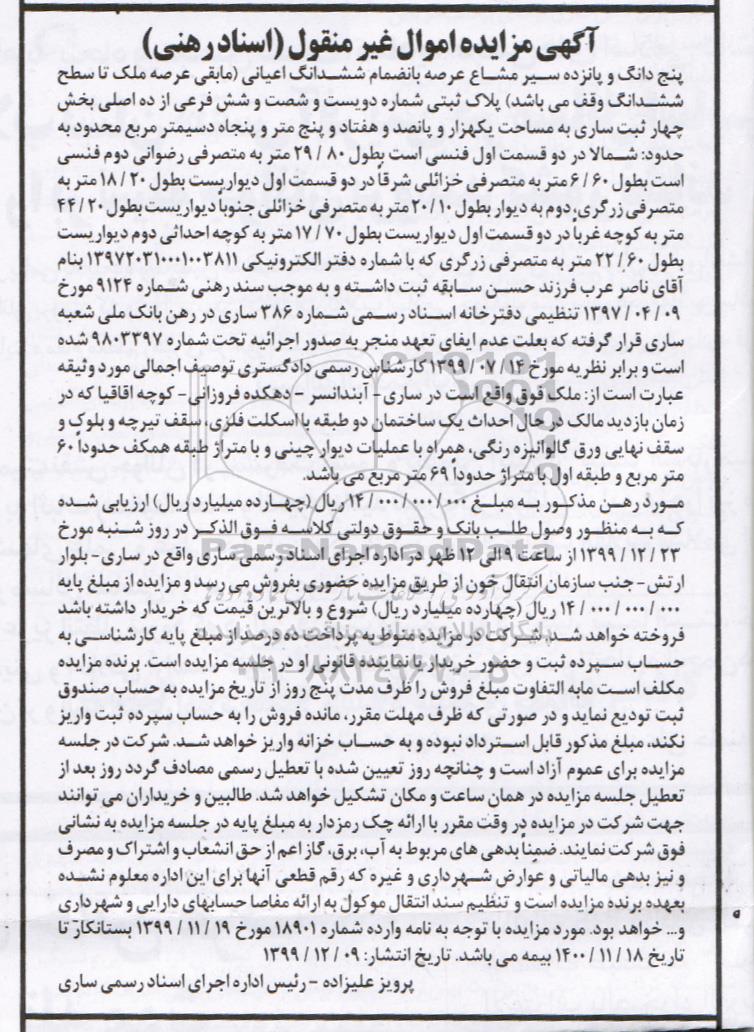 آگهی مزایده اموال غیر منقول (اسناد رهنی)
پنج دانگ و پانزده سیر مشاع عرصه بانضمام ششدانگ اعیانی (مابقی عرصه ملک تا سطح
ششدانگ وقف می باشد) پلاک ثبتی شماره دویست و شصت و شش فرعی از ده اصلی بخش
چهار ثبت ساری به مساحت یکهزار و پانصد و هفتاد و پنج متر و پنجاه دسیمتر مربع محدود به
حدود: شمالا در دو قسمت اول فنسی است بطول ۸۰ / ۲۹ متر به متصرفی رضوانی دوم فنسی
است بطول ۶۰ / ۶ متر به متصرفی خزائلی شرقاً در دو قسمت اول دیواریست بطول ۲۰ / ۱۸ متر به
متصرفی زرگری دوم به دیوار بطول ۱۰ / ۲۰ متر به متصرفی خزائلی جنوباً دیواریست بطول ۲۰ / ۴۴
متر به کوچه غربا در دو قسمت اول دیواریست بطول ۷۰ / ۱۷ متر به کوچه احداثی دوم دیواریست
بطول ۶۰ / ۲۲ متر به متصرفی زرگری که با شماره دفتر الکترونیکی ۱۳۹۷۲۰۳۱۰۰۰۱۰۰۳۸۱۱ بنام
آقای ناصر عرب فرزند حسن سابقه ثبت داشته و به موجب سند رهنی شماره ۹۱۲۴ مورخ
۰۹ / ۰۴ / ۱۳۹۷ تنظیمی دفترخانه اسناد رسمی شماره ۳۸۶ ساری در رهن بانک ملی شعبه
ساری قرار گرفته که بعلت عدم ایفای تعهد منجر به صدور اجرائیه تحت شماره ۹۸۰۳۳۹۷ شده
است و برابر نظریه مورخ ۱۴ / ۰۷ / ۱۳۹۹ کارشناس رسمی دادگستری توصیف اجمالی مورد وثیقه
عبارت است از: ملک فوق واقع است در ساری- آبندانسر - دهکده فروزانی- کوچه اقاقیا که در
زمان بازدید مالک در حال احداث یک ساختمان دو طبقه با اسکلت فلزی، سقف تیرچه و بلوک و
سقف نهایی ورق گالوانیزه رنگی، همراه با عملیات دیوار چینی و با متراژ طبقه همکف حدوداً ۶۰
متر مربع و طبقه اول با متراژ حدوداً ۶۹ متر مربع می باشد.
مورد رهن مذکور به مبلغ ۰۰۰ / ۰۰۰ / ۰۰۰ / ۱۴ ریال (چهارده میلیارد ریال) ارزیابی شده
که به منظور وصول طلب بانک و حقوق دولتی کلاسه فوق الذکر در روز شنبه مورخ
۲۳ / ۱۲ / ۱۳۹۹ از ساعت ۹ الی ۱۲ ظهر در اداره اجرای اسناد رسمی ساری واقع در ساری- بلوار
ارتش- جنب سازمان انتقال خون از طریق مزایده حضوری بفروش می رسد و مزایده از مبلغ پایه
۰۰۰ / ۰۰۰ / ۰۰۰ / ۱۴ ریال (چهارده میلیارد ریال) شروع و بالاترین قیمت که خریدار داشته باشد
فروخته خواهد شد. شرکت در مزایده منوط به پرداخت ده درصد از مبلغ پایه کارشناسی به
حساب سپرده ثبت و حضور خریدار یا نماینده قانونی او در جلسه مزایده است. برنده مزایده
مکلف است مابه التفاوت مبلغ فروش را ظرف مدت پنج روز از تاریخ مزایده به حساب صندوق
ثبت تودیع نماید و در صورتی که ظرف مهلت مقرر، مانده فروش را به حساب سپرده ثبت واریز
نکند، مبلغ مذکور قابل استرداد نبوده و به حساب خزانه واریز خواهد شد. شرکت در جلسه
مزایده برای عموم آزاد است و چنانچه روز تعیین شده با تعطیل رسمی مصادف گردد روز بعد از
تعطیل جلسه مزایده در همان ساعت و مکان تشکیل خواهد شد. طالبین و خریداران می توانند
جهت شرکت در مزایده در وقت مقرر با ارائه چک رمزدار به مبلغ پایه در جلسه مزایده به نشانی
فوق شرکت نمایند. ضمناً بدهی های مربوط به آب، برق، گاز اعم از حق انشعاب و اشتراک و مصرف
و نیز بدهی مالیاتی و عوارض شهرداری و غیره که رقم قطعی آنها برای این اداره معلوم نشده
بعهده برنده مزایده است و تنظیم سند انتقال موکول به ارائه مفاصا حسابهای دارایی و شهرداری
و... خواهد بود. مورد مزایده با توجه به نامه وارده شماره ۱۸۹۰۱ مورخ ۱۹ / ۱۱ / ۱۳۹۹ بستانکار تا
تاریخ ۱۸ / ۱۱ / ۱۴۰۰ بیمه می باشد. تاریخ انتشار: ۰۹ / ۱۲ / ۱۳۹۹
پرویز علیزاده - رئیس اداره اجرای اسناد رسمی ساری
ParsNamadData